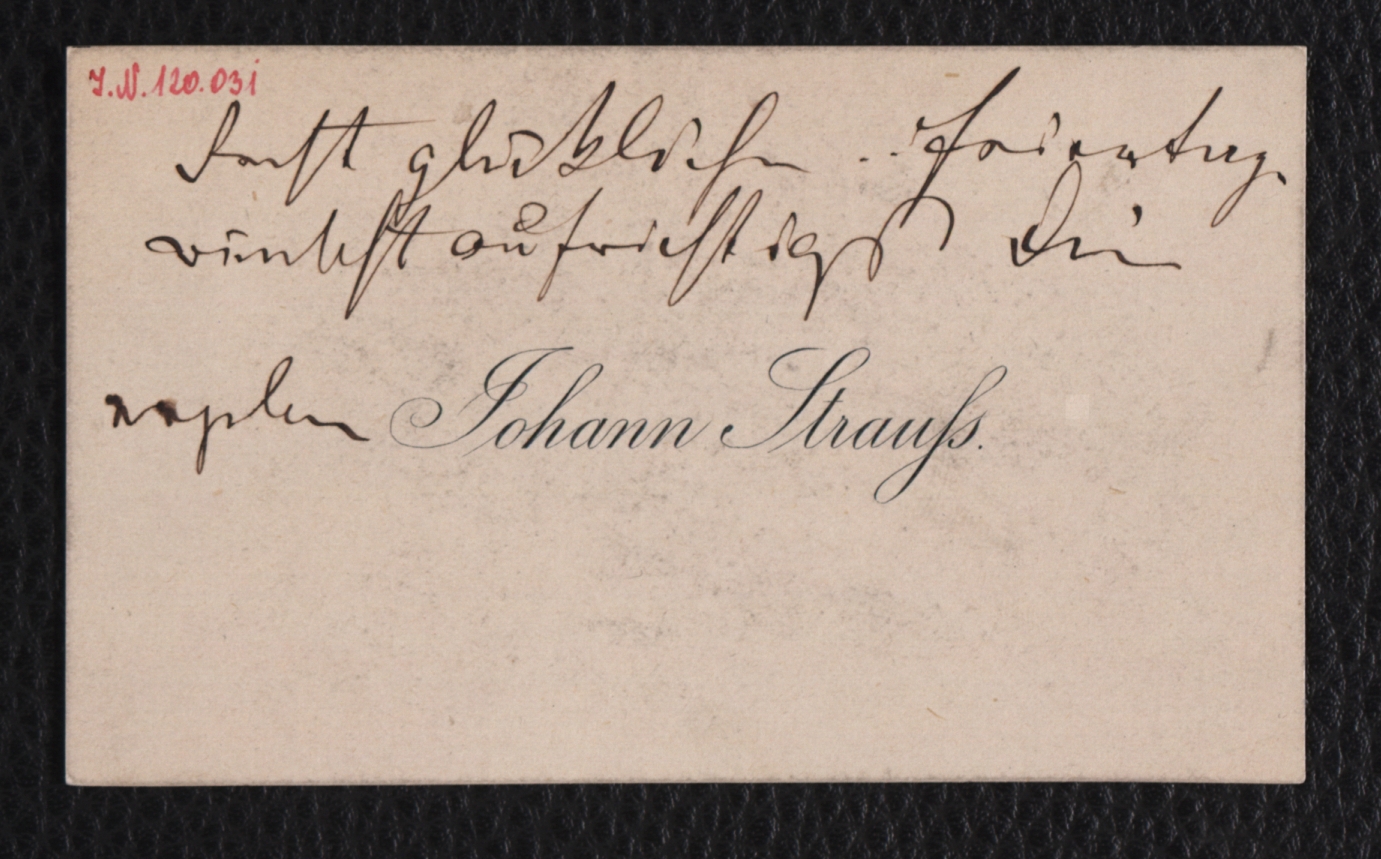 I.N. 120.031
Recht glückliche Feiertag.
wünscht aufrichtigst Dein
Johann Strauss.